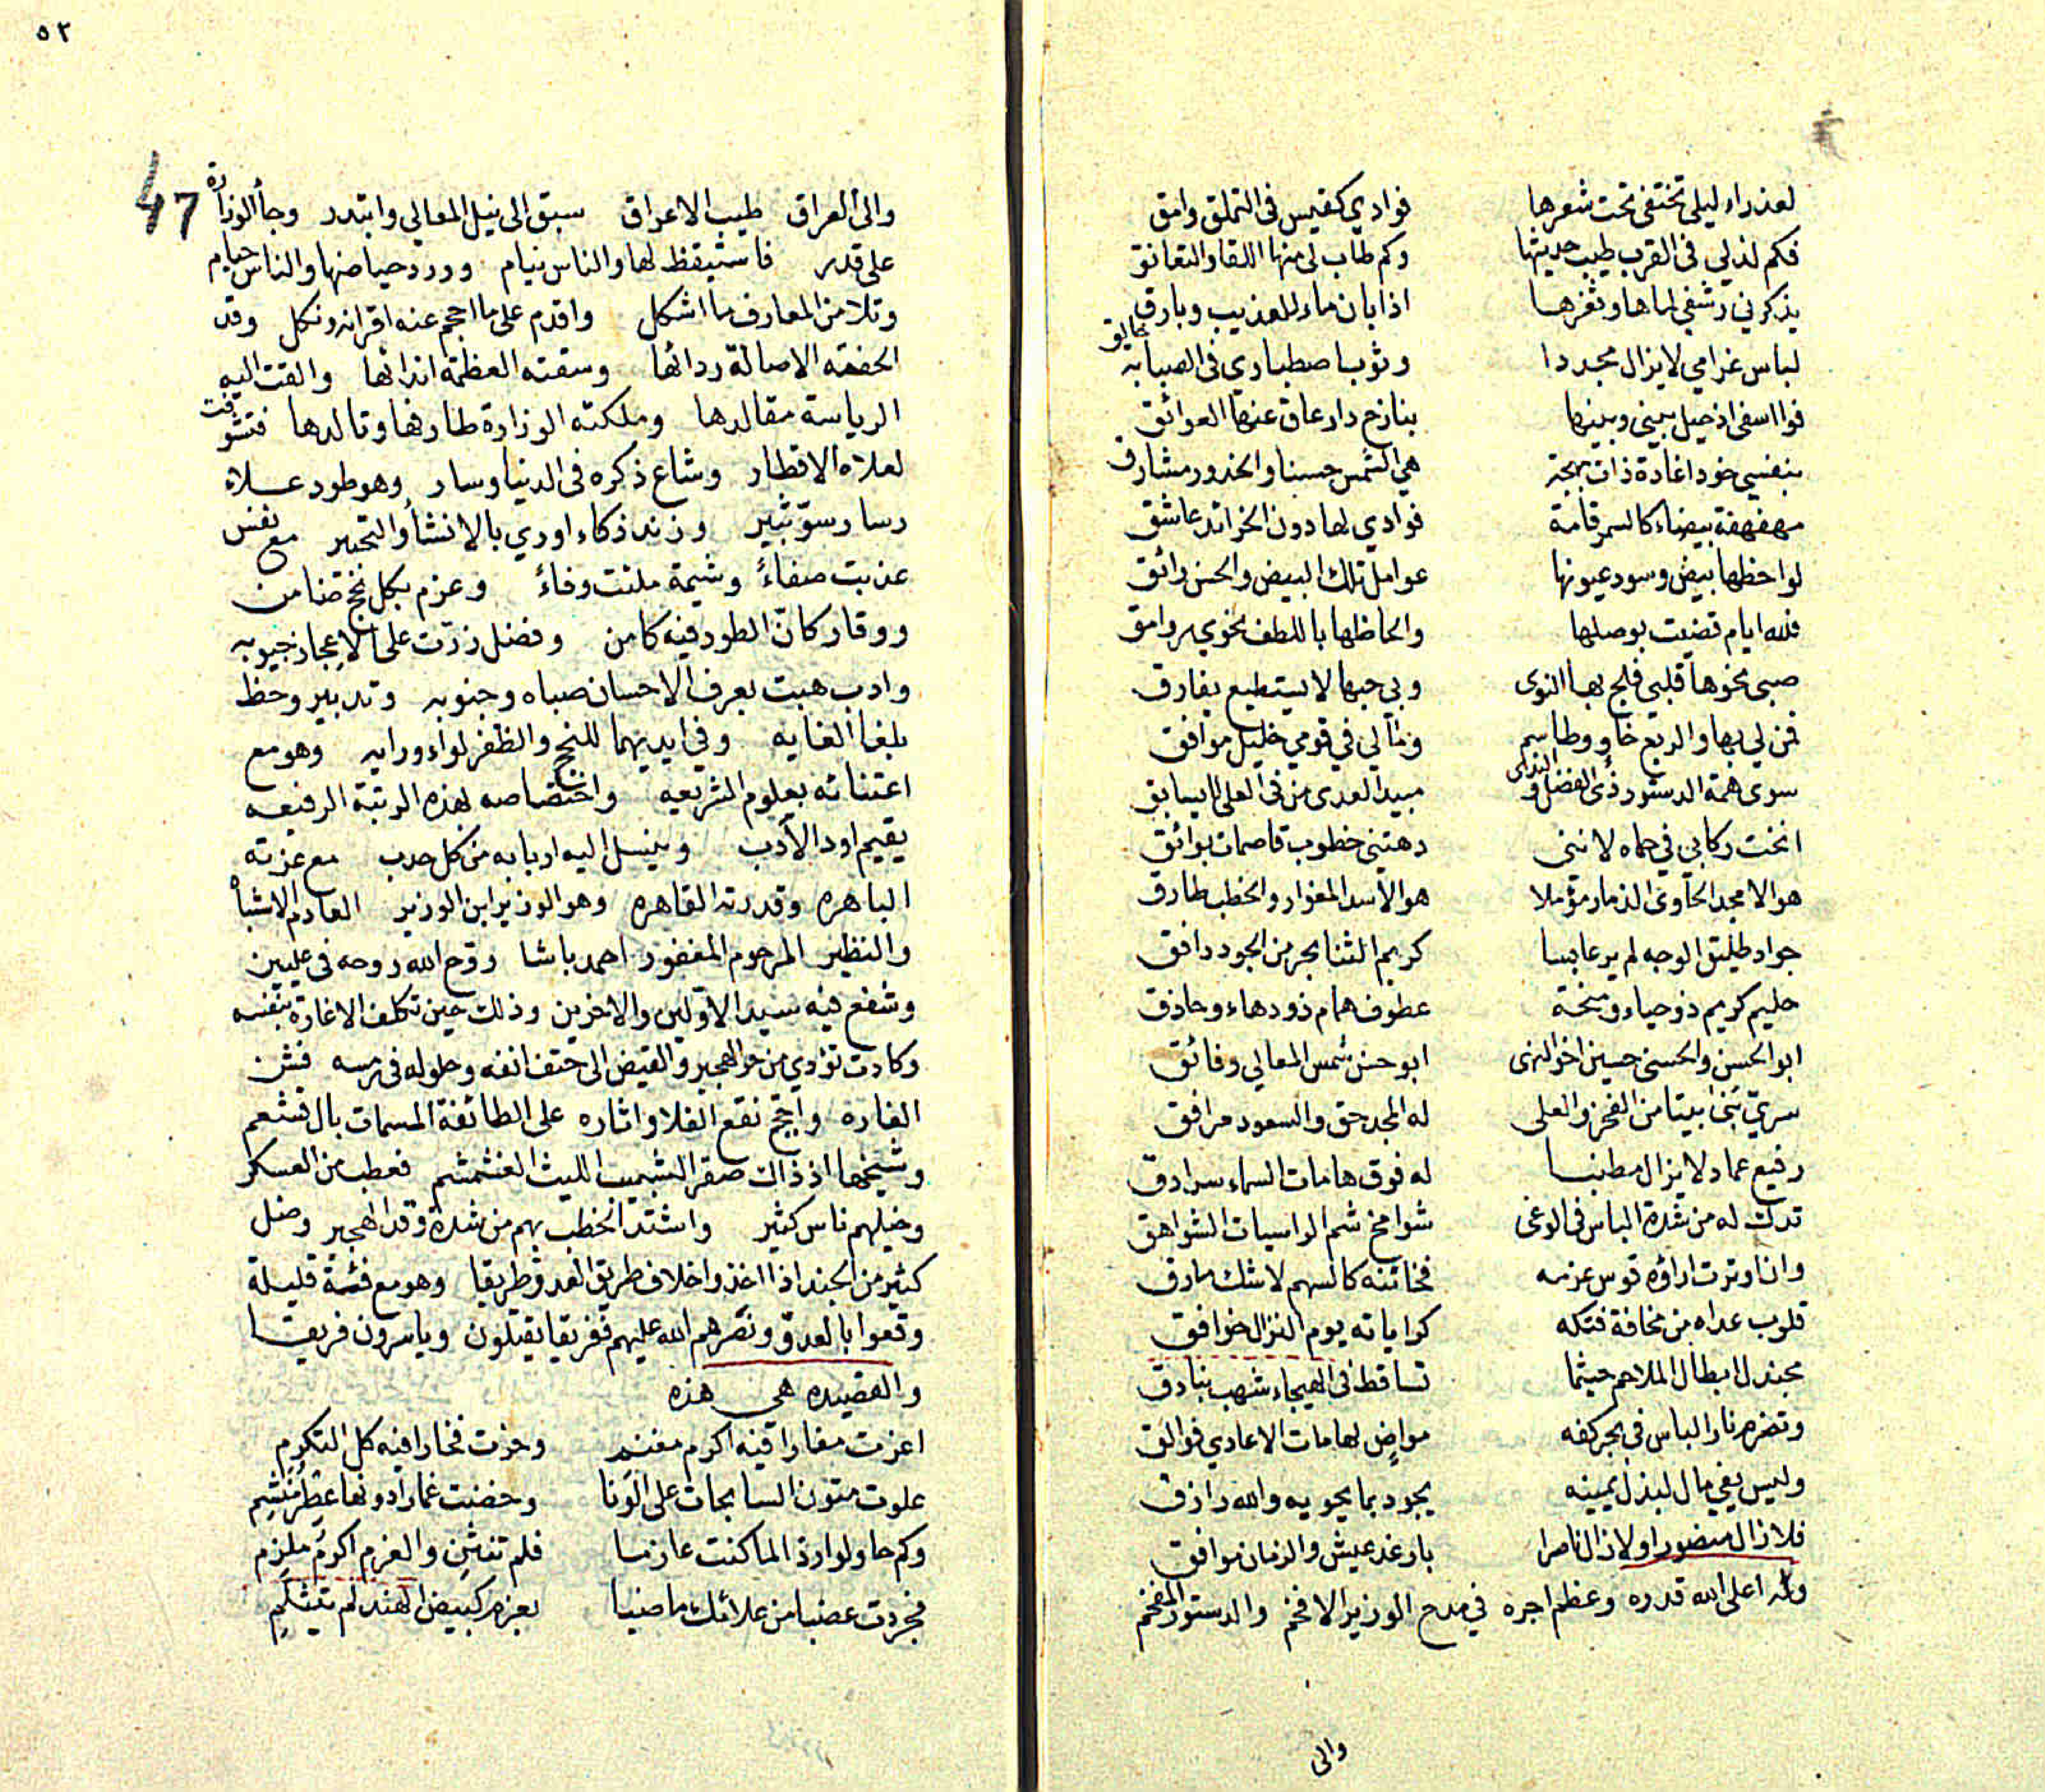 لعذراء ليلى تختفي تحت شعرها فوادي كقيس في التملق وامق
فكم لذ لي في القرب طيب حديثها وكم طاب لي منها اللقا والتعانق
يذكرني رشفي لماها وثغرها اذا بان ماء للعذيب وبارق
لباس غرامي لا يزال مجددا وثوب اصطباري في الصبابة خالق
فوا اسفى اذ حيل بيني وبينها بنازح دار عاق عنها العوائق
بنفسي خودا غادة ذات بهجة هي الشمس حسنا والخدور مشارق
مهفهفة بيضاء كالسمر قامة فوادي لها دون الخرائد عاشق
لواحظها بيض وسود عيونها عوامل تلك البيض والحسن رائق
فلله ايام قضيت بوصلها والحاظها باللطف نحوي روامق
صبى نحوها قلبي فلج بها النوى وبي حبها لا يستطيع يفارق
فمن لي بها والربع خاو وطاسم وما لي في قومي خليل موافق
سوى همة الدستور ذي الفضل والندى مبيد العدى من في العلى لا يسابق
انخت ركابي في حماه لانني دهتني خطوب قاصمات بوائق
هو الامجد الحاوي الذمار مؤملا هو الأسد المغوار والخطب طارق
جواد طليق الوجه لم ير عابسا كريم الثنا بحر من الجود دافق
حليم كريم ذو حياء ومنحة عطوف همام ذو دهاء وحاذق
ابو الحسن والحسنى حسين اخو النهى ابو حسن شمس المعالي وفائق
سري بنى بيتا من الفخر والعلى له المجد حق والسعود مرافق
رفيع عماد لا يزال مطنبا له فوق هامات السماء سرادق
تدك له من شدة الباس في الوغى شوامخ شم الراسيات الشواهق
وان اوترت اراؤه قوس عزمه كالسهم لا شك مارق
قلوب عداه من مخافة فتكه كراياته يوم النزال خوافق
بجندل ابطال الملاحم حيثما تساقط في الهيجاء شهب بنادق
وتضرم نار الباس في بحر كفه مواض لهامات الاعادي فوالق
وليس يفي مال لبذل يمينه يجود بما يحويه والله رازق
فلا زال منصورا ولا زال ناصرا بارغد عيش والزمان موافق
وله اعلى الله قدره وعظم اجره في مدح الوزير الافخم والدستور المفخم
والى
٥٢
47
والى العراق طيب الاعراق سبق الى نيل المعالي وابتدر وجأ الوزارة
على قدر فاستيقظ لها والناس نيام وورد حياضها والناس حيام
وتلا من المعارف ما اشكل واقدم على ما احجم عنه اقرانه ونكل وقد
الحفته الاصالة ردائها وسقته العظمة اندائها والقت اليه
الرياسة مقالدها وملكته الوزارة طارفها وتالدها فتشوفت
لعلاه الاقطار وشاع ذكره في الدنيا وسار وهو طود علاء
رسا رسو ثبير وزند ذكاء اوري بالانشأ والتحبير مع نفس
عذبت صفاءً وشيمة ملئت وفاءً وعزم بكل نجح ضامن
ووقار كان الطود فيه كامن وفضل زرّت على الاعجاز جيوبه
وادب هبت بعرف الاحسان صباه وجنوبه وتدبير وحظ
بلغا الغايه وفي ايديهما للنجح والظفر لواء ورايه وهو مع
اعتنائه بعلوم الشريعه واختصاصه لهذه الرتبة الرفيعه
يقيم اود الأدب وينسل اليه اربابه من كل حدب مع عزته
الباهره وقدرته القاهره وهو الوزير ابن الوزير العادم الاشباه
والنظير المرحوم المغفور احمد باشا روح الله روحه في عليين
وشفع فيه سيد الاولين والاخرين وذلك حين تكلف الاغارة بنفسه
وكادت تؤدي من حر الهجير والقيض الى حتف انفه وحلوله في رمسه فشن
الغارة واجج نقع الفلا واثاره على الطائفة المسمات بال قشعم
وشيخها اذ ذاك صقر الليث الغشمشم فعطب من العسكر
وخيلهم ناس كثير واشتد الخطب بهم من شدة وقد الهجير وضل
كثير من الجند اذا اخذوا خلاف طريق العدو طريقا وهو مع فئة قليلة
وقعوا بالعدو ونصرهم الله عليهم ففريقا يقتلون وياسرون فريقا
والقصيده هي هذه
اغرت مغارا فيه اكرم مغنم وحزت فخارا فيه كل التكرم
علوت متون السابحات على الونا وخضت غمارا دونها عطر منشم
وكم حاولوا ردا لما كنت عازما فلم تنثن والعزم اكرم ملزم
فجردت عضبا من علائك ماضيا بعزم كبيض الهند لم يتثلم